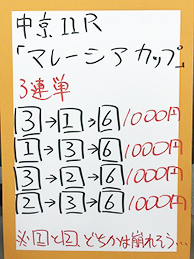 中京11R
「マレーシアカップ」
3連単
3→1→6 1000円
1→3→6 1000円
3→2→6 1000円
2→3→6 1000円
※1と2、どちかは崩れそう…